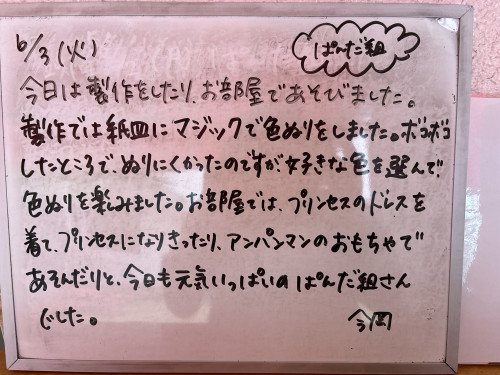 6/3(火)
ぱんだ組
今日は製作をしたり、お部屋であそびました。
製作では紙皿にマジックで色ぬりをしました。ボコボコ
したところで、ぬりにくかったのですが好きな色を選んで
色ぬりを楽しみました。お部屋では、プリンセスのドレスを
着て、プリンセスになりきったり、アンパンマンのおもちゃで
あそんだりと、今日も元気いっぱいの ぱんだ組さん
でした。
今岡